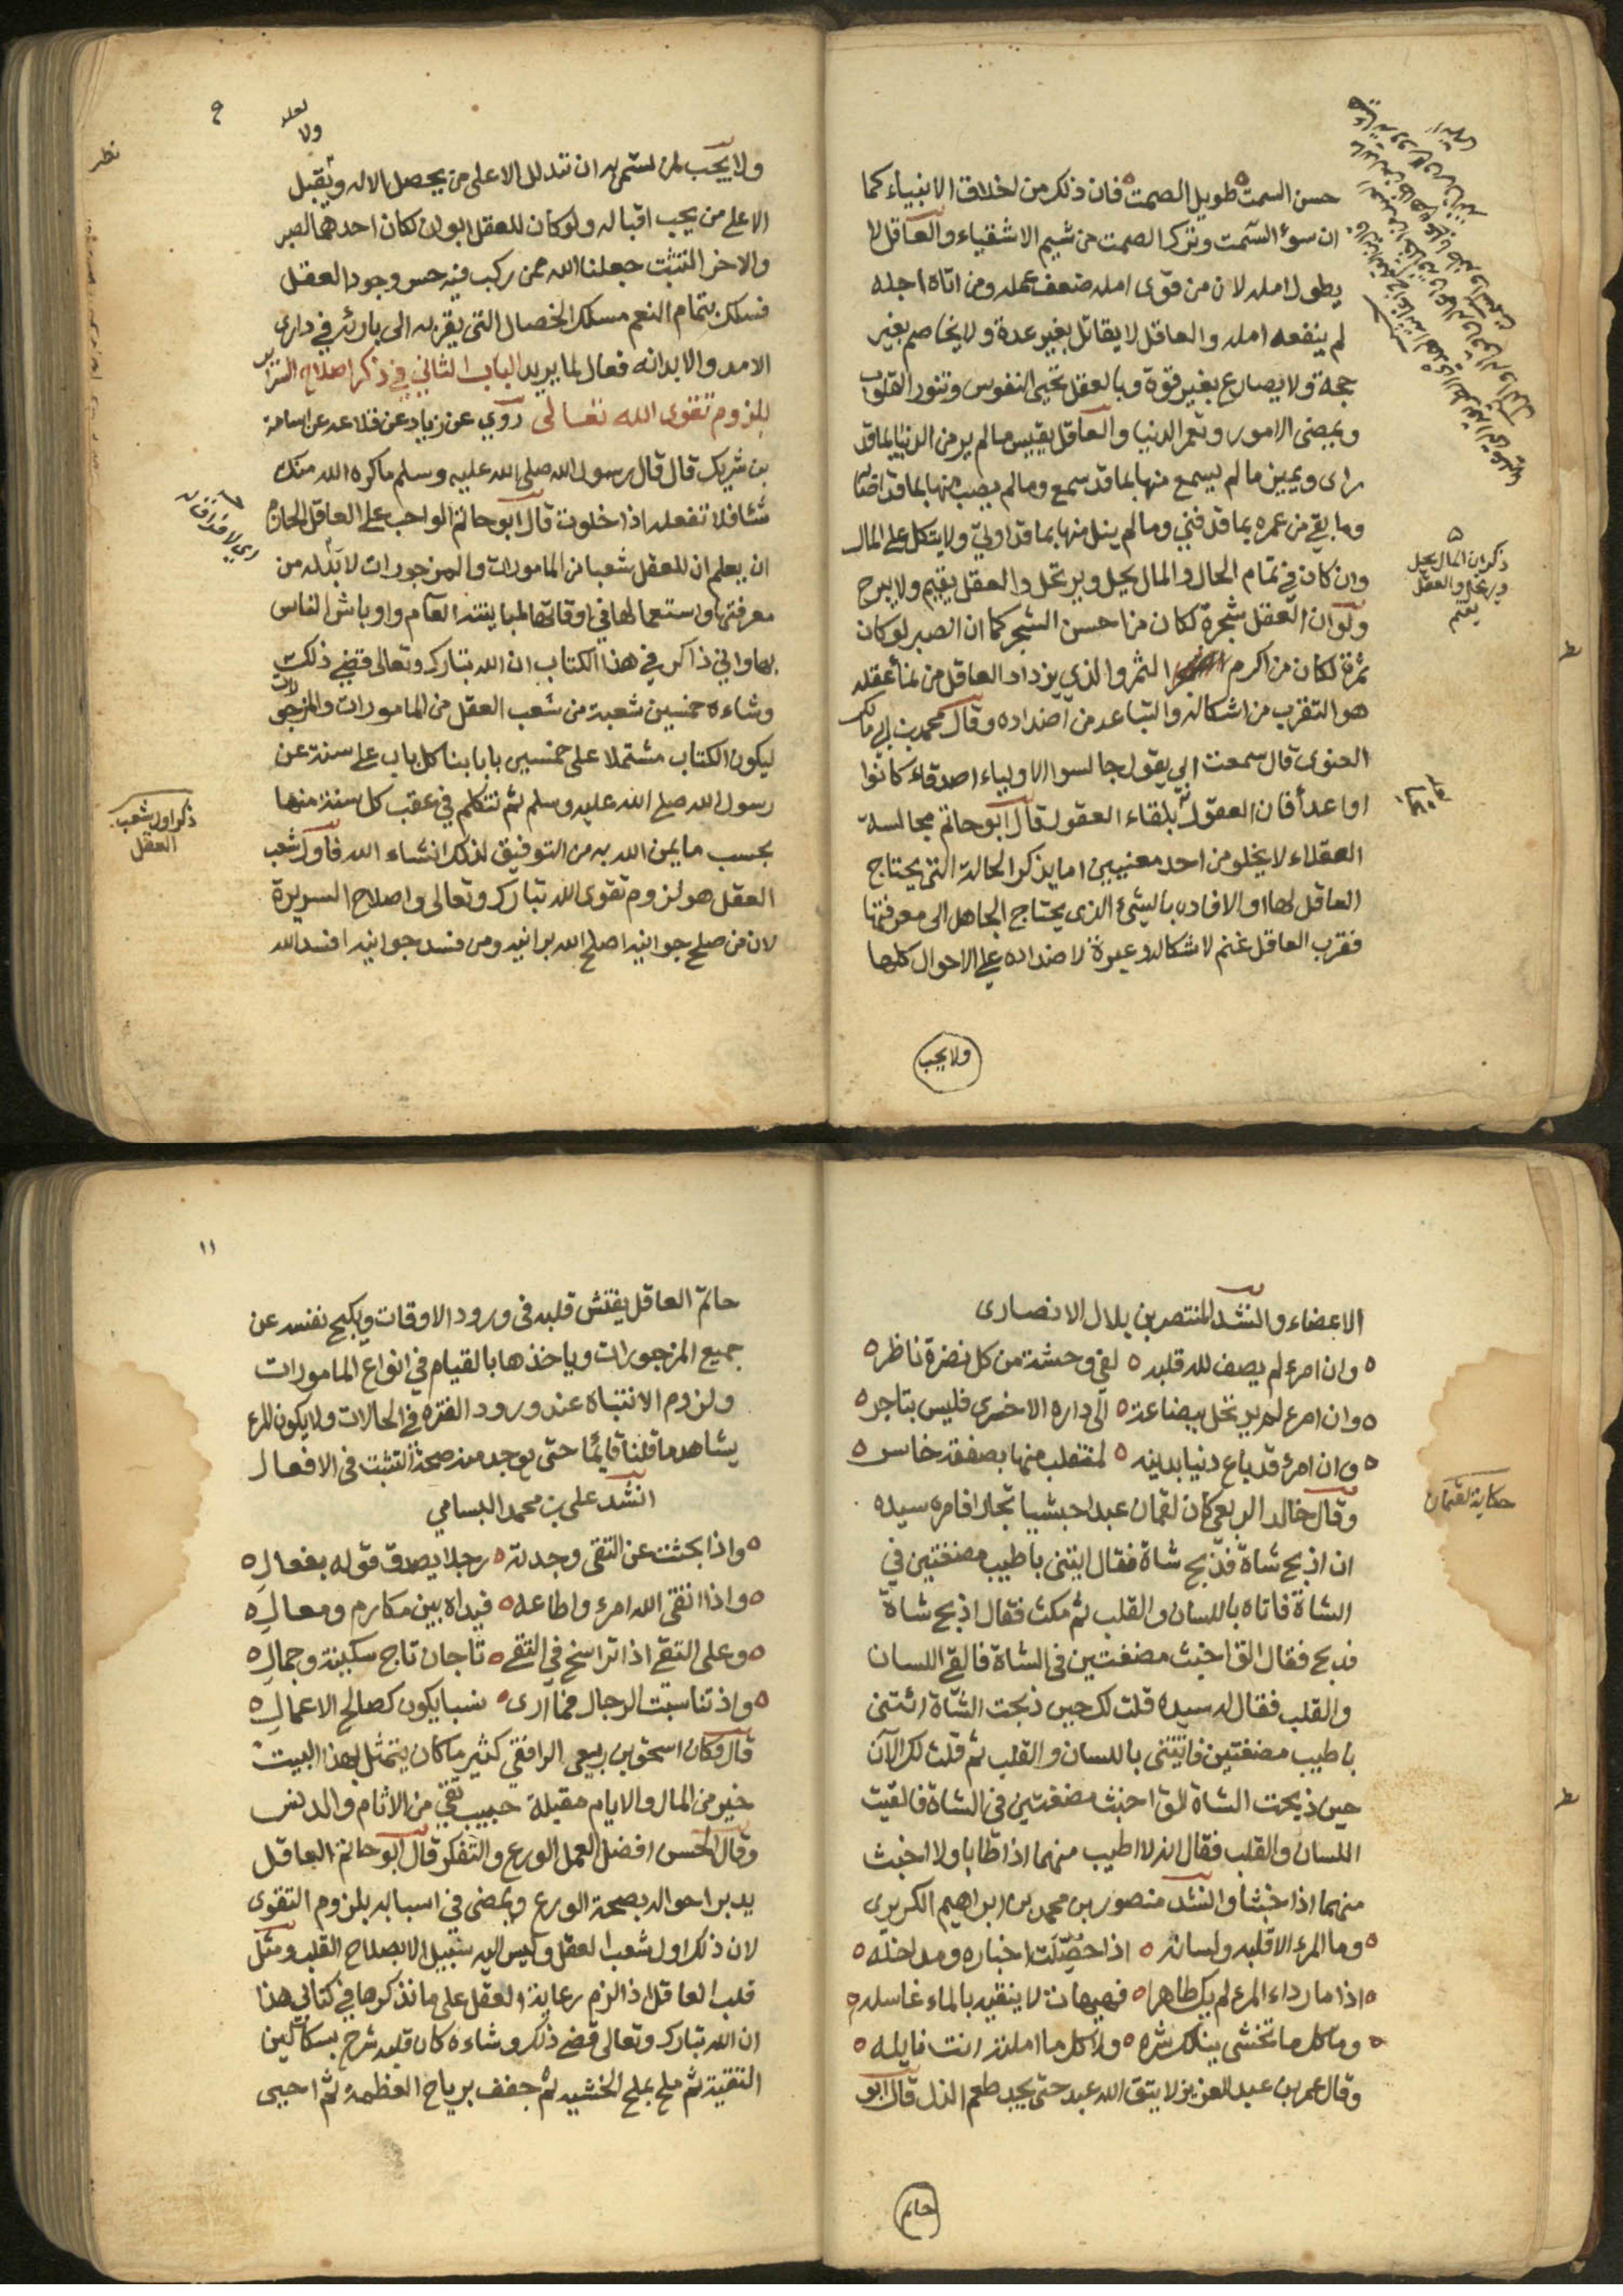 حسن السمت طويل الصمت فان ذلك من اخلاق الانبياء كما
ان سوء السمت وترك الصمت من شيم الاشقياء والعاقل لا
يطول امله لان من قوى امله ضعف عمله ومن اتاه اجله
لم ينفعه امله والعاقل لا يقاتل بغير عدة ولا يخاصم بغير
حجة ولا يصارع بغير قوة وبالعقل تحيى النفوس وتنور القلوب
وبمضى الامور وتعمر الدنيا والعاقل يقيس ما لم ير من الدنيا بما قد
راى ويميز ما لم يسمع منها بما قد سمع وما لم يصب منها بما قد اصاب
وما بقي من عمره بما قد فني وما لم ينل منها بما قد اولي ولا يتكل على المال
وان كان في تمام الحال والمال يحل ويرتحل والعقل يقيم ولا يبرح
ولو ان العقل شجرة لكان من احسن الشجر كما ان الصبر لو كان
ثمرة لكان من اكرم الثمر والذي يزداد العاقل من نماء عقله
هو التقرب من اشكاله والتباعد من اضداده وقال محمد بن ابي مالك
الغنوى قال سمعت ابي يقول جالسوا الاولياء اصدقاء كانوا
او اعداء فان العقول بلقاء العقول قال ابو حاتم مجالسة
العقلاء لا يخلو من احد معنيين اما يذكر الحالة التى يحتاج
العاقل لها او الافاده بالشيء الذى يحتاج الجاهل الى معرفتها
فقرب العاقل غنم لاشكاله وعبرة لاضداده على الاحوال كلها
ذكر ان المال يحل
ويرتحل والعقل
يقيم
ولا يجب
٩
لعله
ولا
نظر
ولا يجب لمن تسمى به ان تتدلل الا على من يحصل الاله ويقبل
الا على من يجب اقباله ولو كان للعقل ابوان لكان احدهما الصبر
والاخر التثبت جعلنا الله ممن ركب فيه حسن وجود العقل
فسلك بتمام النعم مسلك الخصال التى يقربه الى باوئه في دارى
الامد والابد انه فعال لما يريد الباب الثاني في ذكر اصلاح السراير
بلزوم تقوى الله تعالى روي عن زياد عن علاقه عن اسامة
بن شريك قال قال رسول الله صلى الله عليه وسلم ما كره الله منك
شئا فلا تفعله اذا خلوت قال ابو حاتم الواجب على العاقل الحازم
ان يعلم ان للعقل شعبا من المامورات والمزجورات لا بد له من
معرفتها واستعمالها في اوقاتها لمباينته العام واوباش الناس
بها واني ذاكر في هذا الكتاب ان الله تبارك وتعالى قضى ذلك
وشاءه خمسين شعبة من شعب العقل من المامورات والمزجورات
ليكون الكتاب مشتملا على خمسين بابا بنا كل باب على سنة عن
رسول الله صلى الله عليه وسلم ثم نتكلم في عقب كل سنة منها
بحسب ما يمن الله به من التوفيق لذلك انشاء الله فاول شعب
العقل هو لزوم تقوى الله تبارك وتعالى واصلاح السريرة
لان من صلح جوانيه اصلح الله برانيه ومن فسد جوانيه افسد الله
ذكر اول شعب
العقل
الاعضاء وانشد المنتصر بن بلال الانصارى
وان امرء لم يصف لله قلبه ه لفي وحشة من كل نضرة ناظر ه
وان امرء لم يرتحل ببضاعة ه الى داره الاخرى فليس بتاجر ه
وان امرء قد باع دنيا بدينه ه لمنقلب منها بصفقة خاسر ه
وقال خالد الربعى كان لقمان عبدا حبشيا نجارا فامره سيده
ان اذبح شاة فذبح شاة فقال ايتنى باطيب مضغتين في
الشاة فاتاه باللسان والقلب ثم مكث فقال اذبح شاة
فذبح فقال الق اخبث مضغتين في الشاة فالقى اللسان
والقلب فقال له سيده قلت لك حين ذبحت الشاة ائتنى
باطيب مضغتين فاتيتنى باللسان والقلب ثم قلت لك الآن
حين ذبحت الشاة الق اخبث مضغتين في الشاة فالقيت
اللسان والقلب فقال انه لا اطيب منهما اذا طابا ولا اخبث
منهما اذا خبثا وانشد منصور بن محمد بن ابراهيم الكريزى
وما المرء الا قلبه ولسانه ه اذا حصلت اخباره ومداخله ه
اذا ما رداء المرء لم يك طاهرا ه فهيهات لا ينقيه بالماء غاسله
وما كل ما تخشى ينالك شره ه ولا كل ما املته انت نايله ه
وقال عمر بن عبد العزيز لا يتق الله عبد حتى يجد طعم الذل قال ابو
حكاية لقمان
حاتم
١١
حاتم العاقل يفتش قلبه في ورود الاوقات ويكبح نفسه عن
جميع المزجورات وياخذها بالقيام في انواع المامورات
ولزوم الانتباه عند ورود الفتره في الحالات ولا يكون المرء
يشاهد ما قلنا قايما حتى يوجد منه صحة التثبت في الافعال
انشد على بن محمد البسامي
واذا بحثت عن التقى وجدته ه رجلا يصدق قوله بفعال ه
واذا اتقى الله امرء واطاعه ه فيداه بين مكارم ومعال ه
وعلى التقى اذا تراسخ في التقى ه تاجان تاج سكينة وجمال ه
واذ تناسبت الرجال فما ارى ه نسبا يكون كصالح الاعمال ه
قال وكان اسحق بن ربيعى الرافقي كثير ما كان يتمثل بهذا البيت
خير من المال والايام مقبلة حبيب نقي من الاثام والدنس
وقال الحسن افضل العمل الورع والتفكر قال ابو حاتم العاقل
يدبر احواله بصحة الورع ويمضى في اسبابه بلزوم التقوى
لان ذلك اول شعب العقل وليس اليه سبيل الا بصلاح القلب ومثل
قلب العاقل اذا لزم رعاية العقل على ما نذكرها في كتابي هذا
ان الله تبارك وتعالى قضى ذلك وشاءه كان قلبه شرح بسكاكين
التقية ثم ملح بملح الخشيه ثم جفف برياح العظمة ثم احيى